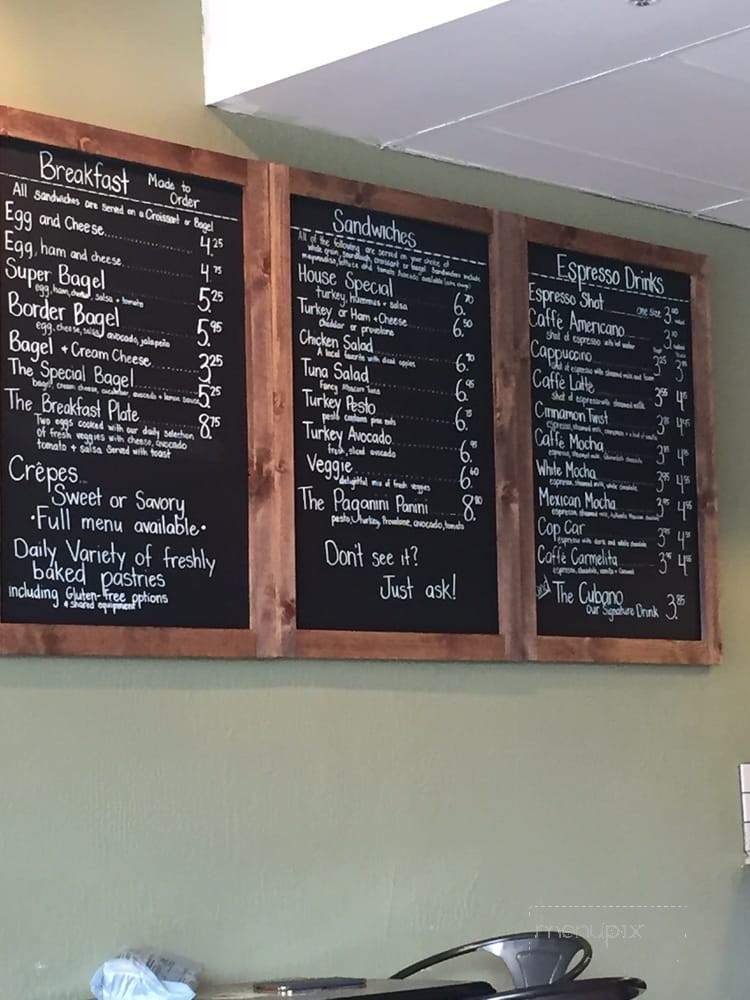 Breakfast Made to Order
All sandwiches are served on a Croissant or Bagel
Egg and Cheese 4.25
Egg, ham and cheese 4.75
Super Bagel 5.25
egg, ham, cheese, salsa + tomato
Border Bagel 5.95
egg, cheese, salsa, avocado, jalapeño
Bagel + Cream Cheese 3.25
The Special Bagel 5.25
bagel, cream cheese, cucumber, avocado + lemon sauce
The Breakfast Plate 8.75
Two eggs cooked with our daily selection
of fresh veggies with cheese, avocado
tomato + salsa. Served with toast
Crêpes...
Sweet or Savory
•Full menu available•
Daily Variety of freshly
baked pastries
including Gluten-free options
* shared equipment
Sandwiches
All of the following are served on your choice of
whole grain, sourdough, croissant or bagel. Sandwiches include
mayonnaise, lettuce and tomato. Avocado available
House Special 6.70
turkey, hummus + salsa
Turkey or Ham + Cheese 6.50
cheddar or provolone
Chicken Salad 6.
A local favorite with diced apples
Tuna Salad 6.95
Fancy Albacore Tuna
Turkey Pesto 6.
pesto contains pine nuts
Turkey Avocado 6.
fresh, sliced avocado
Veggie 6.60
delightful mix of fresh veggies
The Paganini Panini 8.
pesto, turkey, Provolone, avocado, tomato
Don't see it?
Just ask!
Espresso Drinks
Espresso Shot one size 3.
Caffè Americano 3.
shot of espresso with hot water
Cappuccino
shot of espresso with steamed milk and foam
Caffè Latte
shot of espresso with steamed milk
Cinnamon Twist
Caffè Mocha
White Mocha
espresso, steamed milk, white chocolate
Mexican Mocha
Cop Car
espresso with dark and white chocolate
Caffè Carmelita
espresso, chocolate, vanilla + caramel
and The Cubano 3.85
our Signature Drink
menupix